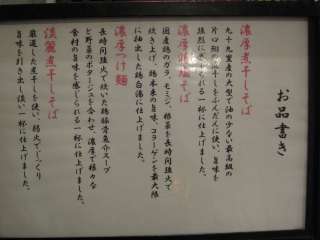 お品書き
濃厚煮干しそば
九十九里産の大型で油の少ない最高級の
片口鰯の煮干しをふんだんに使い、旨味を
強烈にきかせる一杯に仕上げました。
濃厚鶏塩そば
国産鶏のガラ、モミジ、椿茸を長時間強火で
炊き上げ、鶏本来の旨味、コラーゲンを最大限
に抽出した鶏白湯に仕上げました。
濃厚つけ麺
長時間強火で炊いた鶏豚骨魚介スープ
と野菜のポタージュを合わせ、濃厚で様々な
食材の旨味を感じられる一杯に仕上げました。
淡麗煮干しそば
厳選した煮干しを使い、弱火でじっくり
旨味を引き出し淡い一杯に仕上げました。